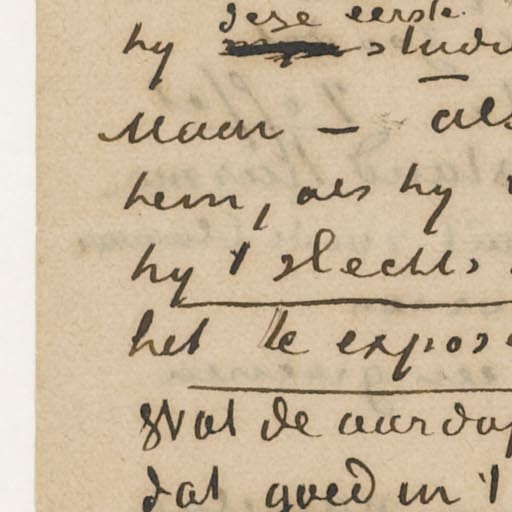 deze eerste
hy studi
Maar — als
hem, als hy
hy 't slechts
het te expos
Wat de aardap
dat goed in 't